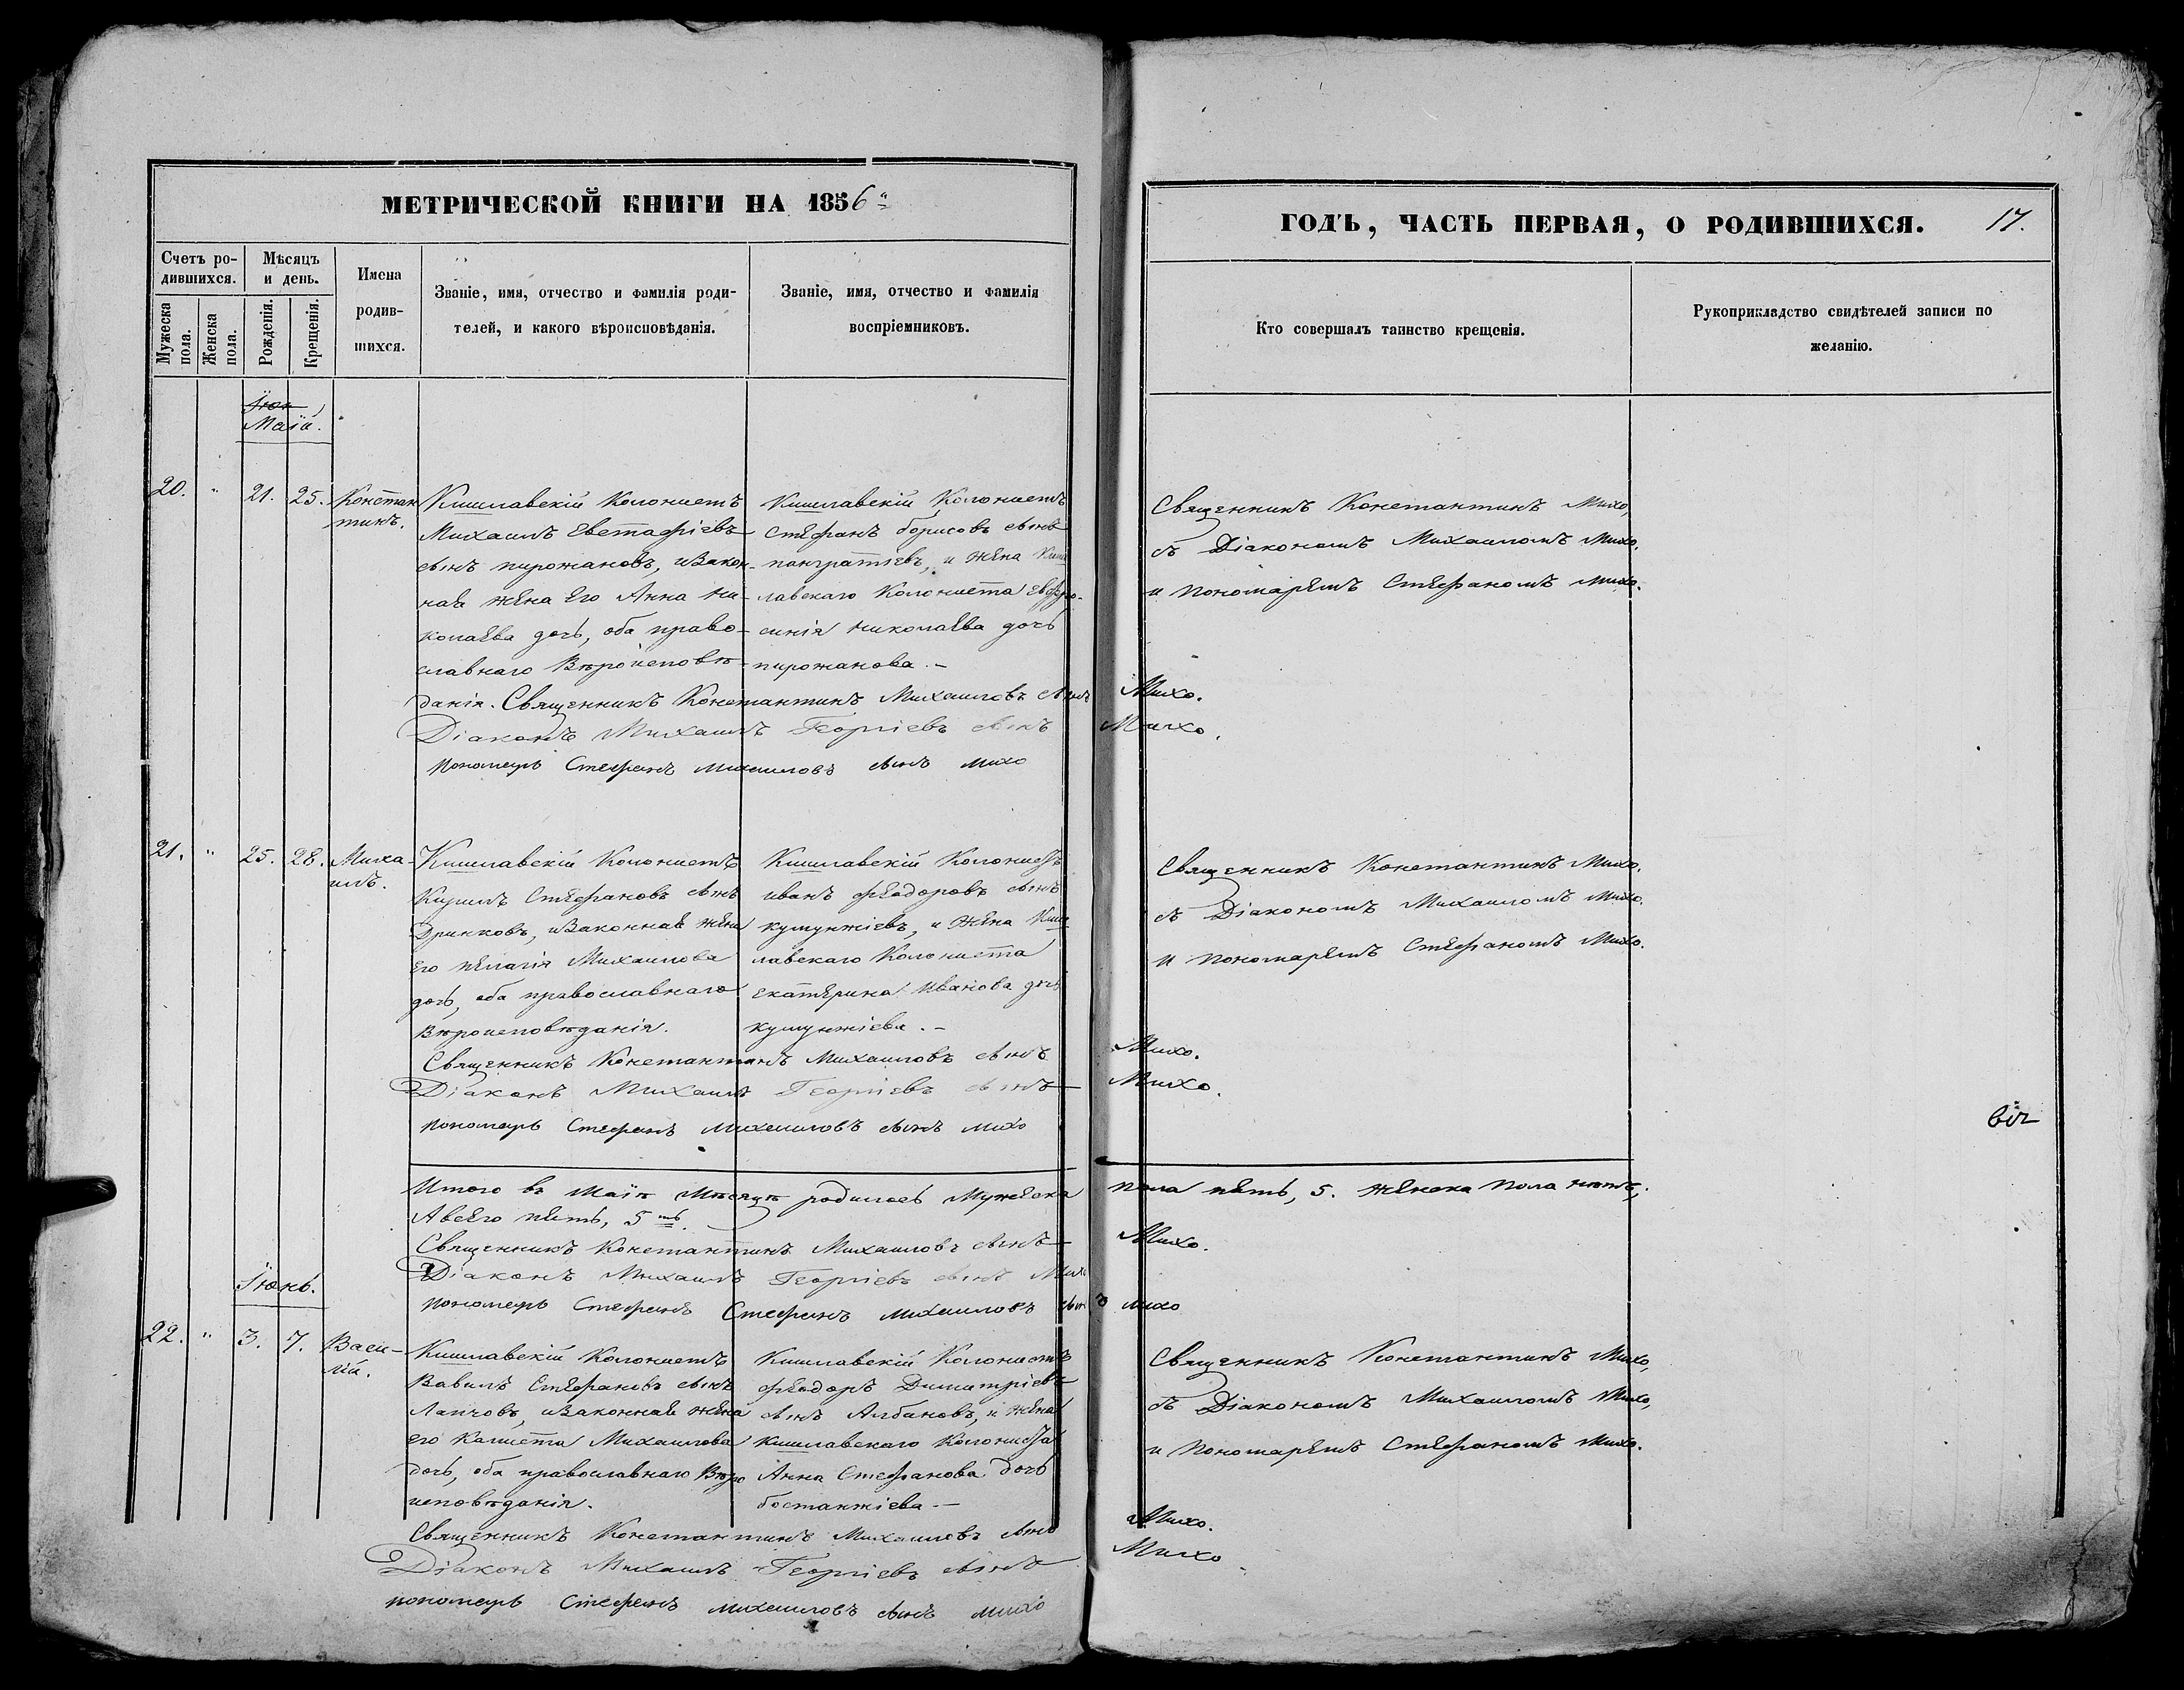 МЕТРИЧЕСКОЙ КНИГИ НА 1856
ГОДЪ, ЧАСТЬ ПЕРВАЯ, О РОДИВШИХСЯ. 17.
Счетъ ро-
дившихся.
Мужеска
пола.
Женска
пола.
Мѣсяцъ
и день.
Рожденія.
Крещенія.
Имена
родив-
шихся.
Званіе, имя, отчество и фамилія роди-
телей, и какого вѣроисповѣданія.
Званіе, имя, отчество и фамилія
воспріемниковъ.
Кто совершалъ таинство крещенія.
Рукоприкладство свидѣтелей записи по
желанію.
Іюн
Маій.
20. " 21. 25. Констан
тинъ.
Кишлавскій Колонистъ
Михаилъ Евстафіевъ
сынъ пирожановъ, изакон-
ная жена его Анна Ни-
колаева дочь, оба право-
славнаго Вѣроисповѣ-
данія.
Кишлавскій Колонистъ
Стефанъ борисовъ сынъ
пангратіевъ, и жена Киш
лавскаго Колониста Евфро-
синія Николаева дочь
пирожанова. –
Священникъ Константинъ Михо,
съ Діакономъ Михаиломъ Михо.
и пономаремъ Стефаномъ Михо.
Священникъ Константинъ Михаиловъ сынъ Михо.
Діаконъ Михаилъ Георгіевъ сынъ Михо.
пономарь Стефанъ михаиловъ сынъ михо
21. " 25. 28. Миха-
илъ.
Кишлавскій Колонистъ
Кирилъ Стефановъ сынъ
Дринковъ, изаконная жена
его пелагія Михаилова
дочь, оба православнаго
Вѣроисповѣданія.
Кишлавскій Колонистъ
иванъ феодоровъ сынъ
куюунжіевъ, и жена Киш-
лавскаго Колониста
екатерина Иванова дочь
куюунжіева. –
Священникъ Константинъ Михо.
съ Діакономъ Михаиломъ Михо.
и пономаремъ Стефаномъ Михо.
Священникъ Константинъ Михаиловъ сынъ Михо.
Діаконъ Михаилъ Георгіевъ сынъ Михо.
пономарь Стефанъ михаиловъ сынъ михо
Итого въ Маіѣ Мѣсяцѣ родилось Мужеска пола пять, 5. женска пола нѣтъ,
Авсего пять, 5ть.
Священникъ Константинъ Михаиловъ сынъ Михо.
Діаконъ Михаилъ Георгіевъ сынъ Михо
пономарь Стефанъ Стефанъ михаиловъ сынъ михо
Іюнь.
22. " 3. 7. Васи-
лій.
Кишлавскій Колонистъ
Вавилъ Стефановъ сынъ
Лапчовъ, изаконная жена
его Калиста Михаилова
дочь, оба православнаго Вѣро
исповѣданія.
Кишлавскій Колонистъ
феодоръ Димитріевъ
сынъ Албановъ, и жена
кишлавскаго Колониста
Анна Стефанова дочь
бостанжіева –
Священникъ Константинъ Михо,
съ Діакономъ Михаиломъ Михо,
и Пономаремъ Стефаномъ Михо.
Священникъ Константинъ Михаиловъ сынъ Михо.
Діаконъ Михаилъ Георгіевъ сынъ Михо
пономарь Стефанъ михаиловъ сынъ михо